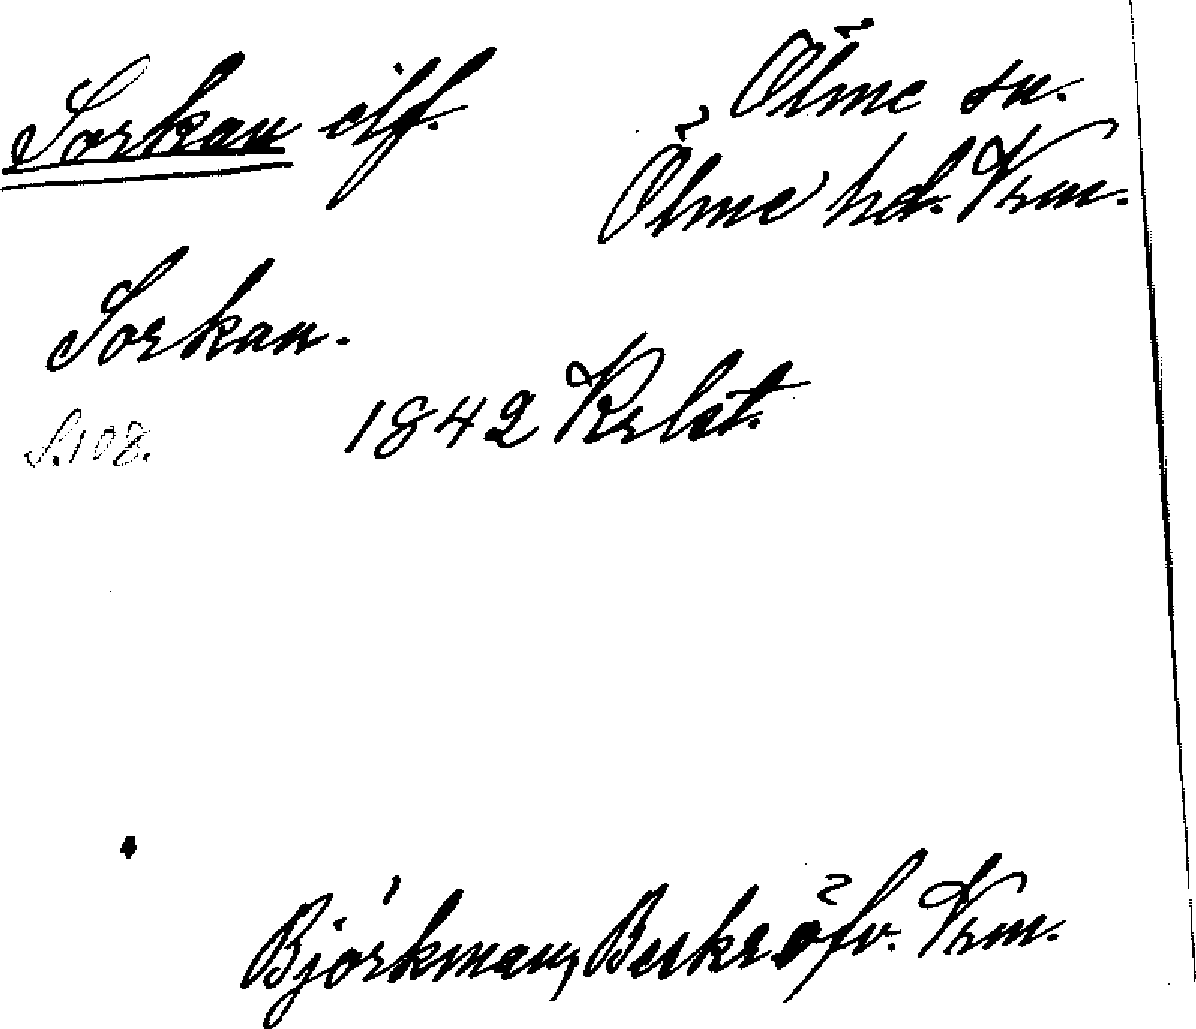 Sorkan elf.
Ölme sn.
Ölme hd. Vrm.
Sorkan.
S. 108.
1842 Krlst.
Björkman, Beskr. öfv. Vrm.